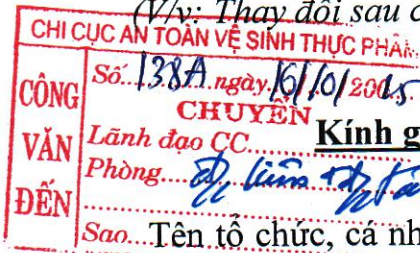 (V/v: Thay đổi sau c
CHI CỤC AN TOÀN VỆ SINH THỰC PHẨM
CÔNG VĂN ĐẾN
Số: 138A ngày 16/10/2015
CHUYỂN
Lãnh đạo CC
Kính g
Phòng
Sao
Tên tổ chức, cá nh